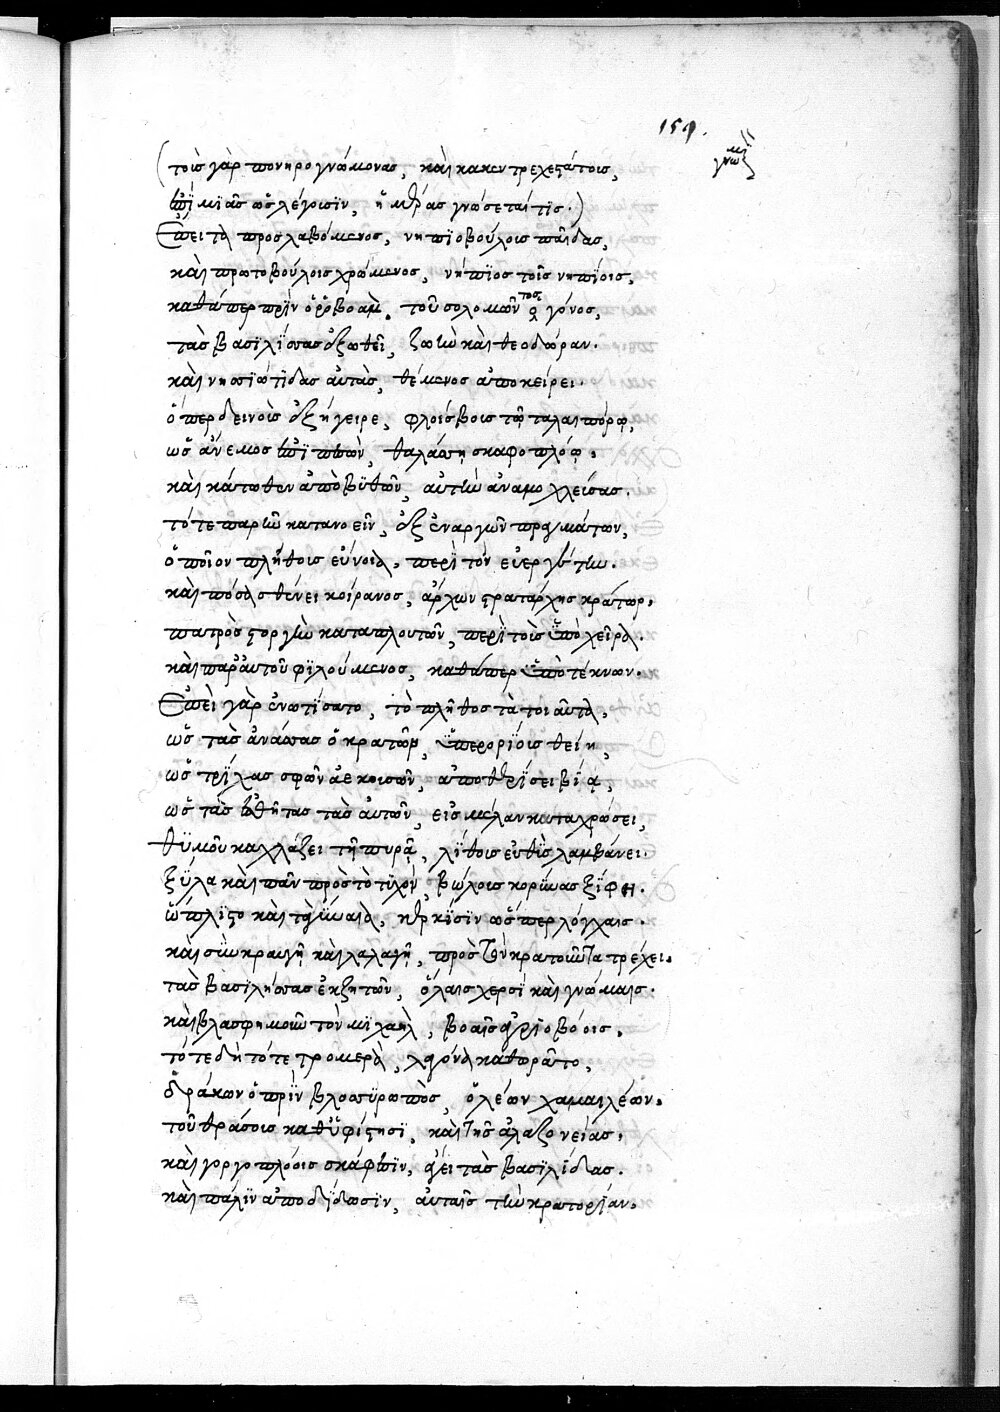 159.
γνω
(τοὺς γὰρ πονηρογνώμονας, καὶ κακεντρεχεστάτοις,
ἐπὶ μιᾶς ὡς λέγουσιν, ἡμέρας γνώσεταί τις.)
Ἔπειτα προσλαβόμενος, νηπιοβούλους παῖδας,
καὶ πρωτοβούλοις χρώμενος, νήπιος τοῖς νηπίοις,
καθάπερ πρὶν ὁ ῥοβοὰμ, τοῦ σολομῶντος ὁ γόνος,
τὰς βασιλίσσας ἐξωθεῖ, ζωὴν καὶ θεοδώραν.
καὶ νησιώτιδας αὐτὰς, θέμενος ἀποκείρει.
ὅπερ δεινοὺς ἐξήγειρε, φλοίσβους τῷ ταλαιπώρῳ,
ὡς ἄνεμος ἐπιπνέων, θαλάσσῃ σκαφοπλόῳ,
καὶ κάτωθεν ἀπὸ βυθῶν, αὐτὴν ἀναμοχλεύσας.
τότε παρῆν κατανοεῖν, ἐξ ἐναργῶν πραγμάτων,
ὁποῖον πλήθους εὔνοια, περὶ τὸν εὐεργέτην.
καὶ πόσα σθένει κοίρανος, ἄρχων στρατάρχης κράτωρ,
πατρὸς στοργὴν καταπλουτῶν, περὶ τοὺς ὑπὸ χεῖρα.
καὶ παρ' αὐτοῦ φιλούμενος, καθάπερ ὑπὸ τέκνων.
Ἐπεὶ γὰρ ἐνωτίσατο, τὸ πλῆθος τὰ τοιαῦτα,
ὡς τὰς ἀνάσσας ὁ κρατῶν, ὑπερορίους θείη,
ὡς τρίχας σφῶν ἀεκουσῶν, ἀποθερίσει βίᾳ,
ὡς τὰς ἐσθῆτας τὰς αὐτῶν, εἰς μέλαν καταχρώσει,
θυμοῦ καχλάζει τῇ πυρᾷ, λίθους εὐθὺς λαμβάνει.
ξύλα καὶ πᾶν πρὸς τὸ τυχὸν, βώλους κορύνας ξίφη.
ὥπλιστο καὶ τὰ γύναια, κερκίσιν ὥσπερ λόγχαις.
καὶ σὺν κραυγῇ καὶ λαλαγῇ, πρὸς τὸν κρατοῦντα τρέχει.
τὰς βασιλίσσας ἐκζητῶν, ὅλαις χερσὶ καὶ γνώμαις.
καὶ βλασφημοῦν τὸν μιχαὴλ, βοαῖς ἀγριοβόοις.
τότε δὴ τότε τρομερὰ, λέγοντα καθωρᾶτο,
δράκων ὁ πρὶν βλοσυρωπὸς, ὁ λέων χαμαιλέων,
τοῦ θράσους καθυφίησι, καὶ τῆς ἀλαζονείας,
καὶ γοργοπλόοις σκάφεσιν, ἄγει τὰς βασιλίδας.
καὶ πάλιν ἀποδίδωσιν, αὐταῖς τὴν κρατορίαν,